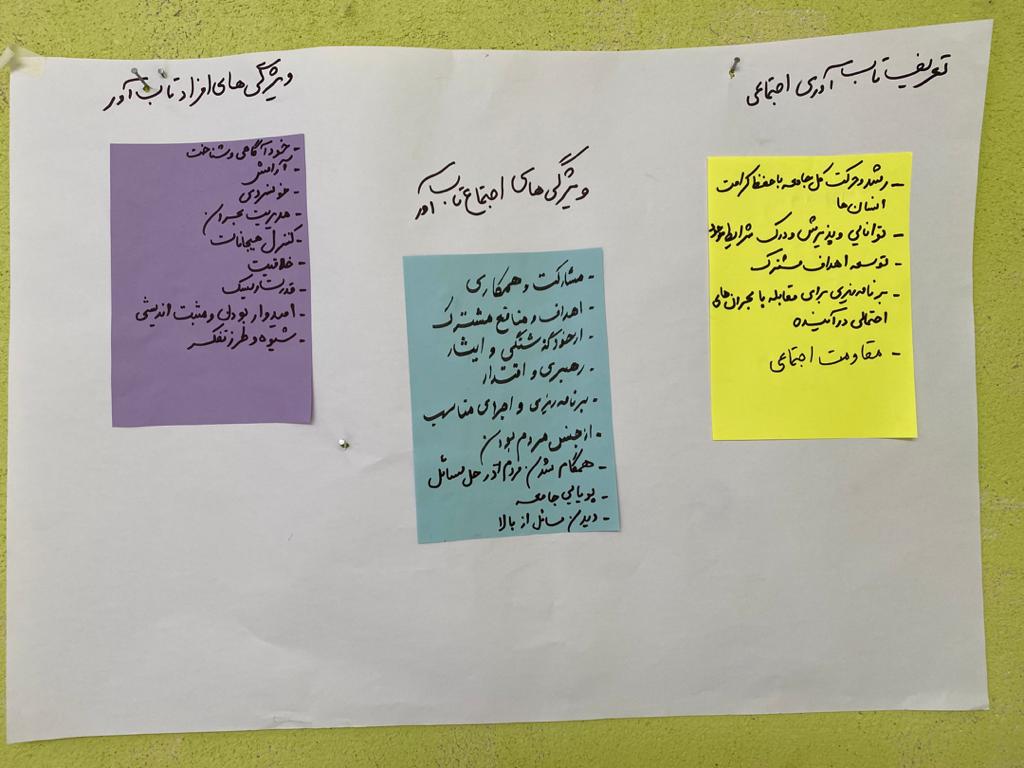 تعریف تاب آوری اجتماعی
- رشد و حرکت کل جامعه با حفظ کرامت
انسان ها
- توانایی و پذیرش و درک شرایط موجود
- توسعه اهداف مشترک
- برنامه ریزی برای مقابله با بحران های
احتمالی در آینده
- مقاومت اجتماعی
ویژگی های اجتماع تاب آور
- مشارکت و همکاری
- اهداف و منافع مشترک
- ازخودگذشتگی و ایثار
- رهبری و اقتدار
- برنامه ریزی و اجرای مناسب
- از جنس مردم بودن
- همگام شدن مردم در حل مسائل
- پویایی جامعه
- دیدن مسائل از بالا
ویژگی های افراد تاب آور
- خودآگاهی و شناخت
- آرامش
- خونسردی
- مدیریت بحران
- کنترل هیجانات
- خلاقیت
- قدرت ریسک
- امیدوار بودن و مثبت اندیشی
- شیوه و طرز تفکر